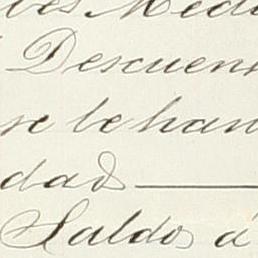 bes Medi
Descuen
se le han
dad
Saldos á